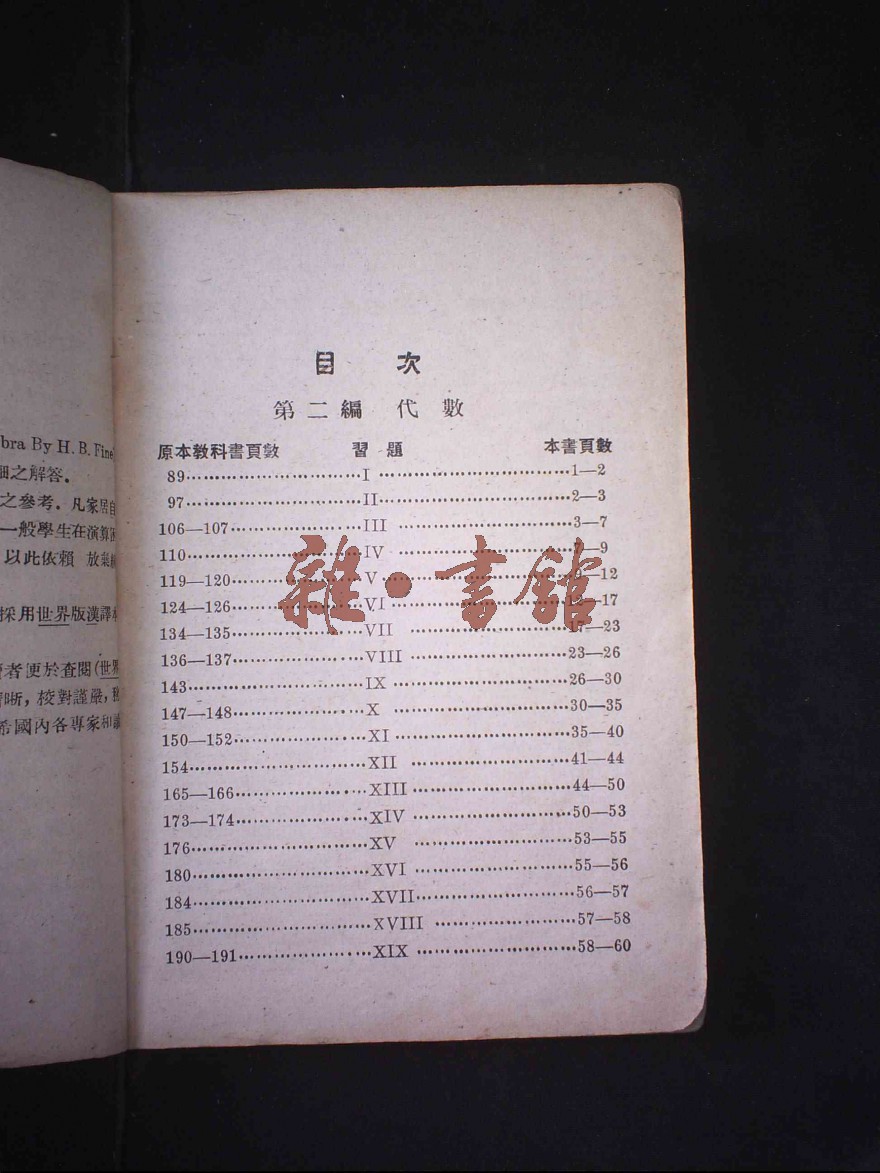 bra By H. B. Fine
之解答.
之參考. 凡家居自
一般學生在演算
以此依賴 放棄
採用世界版漢譯
者便於查閱(世界
晰, 校對謹嚴,
希國內各專家和
目 次
第二編 代數
原本教科書頁數 習題 本書頁數
89………………………I………………………1—2
97………………………II………………………2—3
106—107………………III………………………3—7
110………………………IV………………………7—9
119—120………………V………………………9—12
124—126………………VI………………………12—17
134—135………………VII………………………17—23
136—137………………VIII………………………23—26
143………………………IX………………………26—30
147—148………………X………………………30—35
150—152………………XI………………………35—40
154………………………XII………………………41—44
165—166………………XIII………………………44—50
173—174………………XIV………………………50—53
176………………………XV………………………53—55
180………………………XVI………………………55—56
184………………………XVII………………………56—57
185………………………XVIII………………………57—58
190—191………………XIX………………………58—60
雜·書館